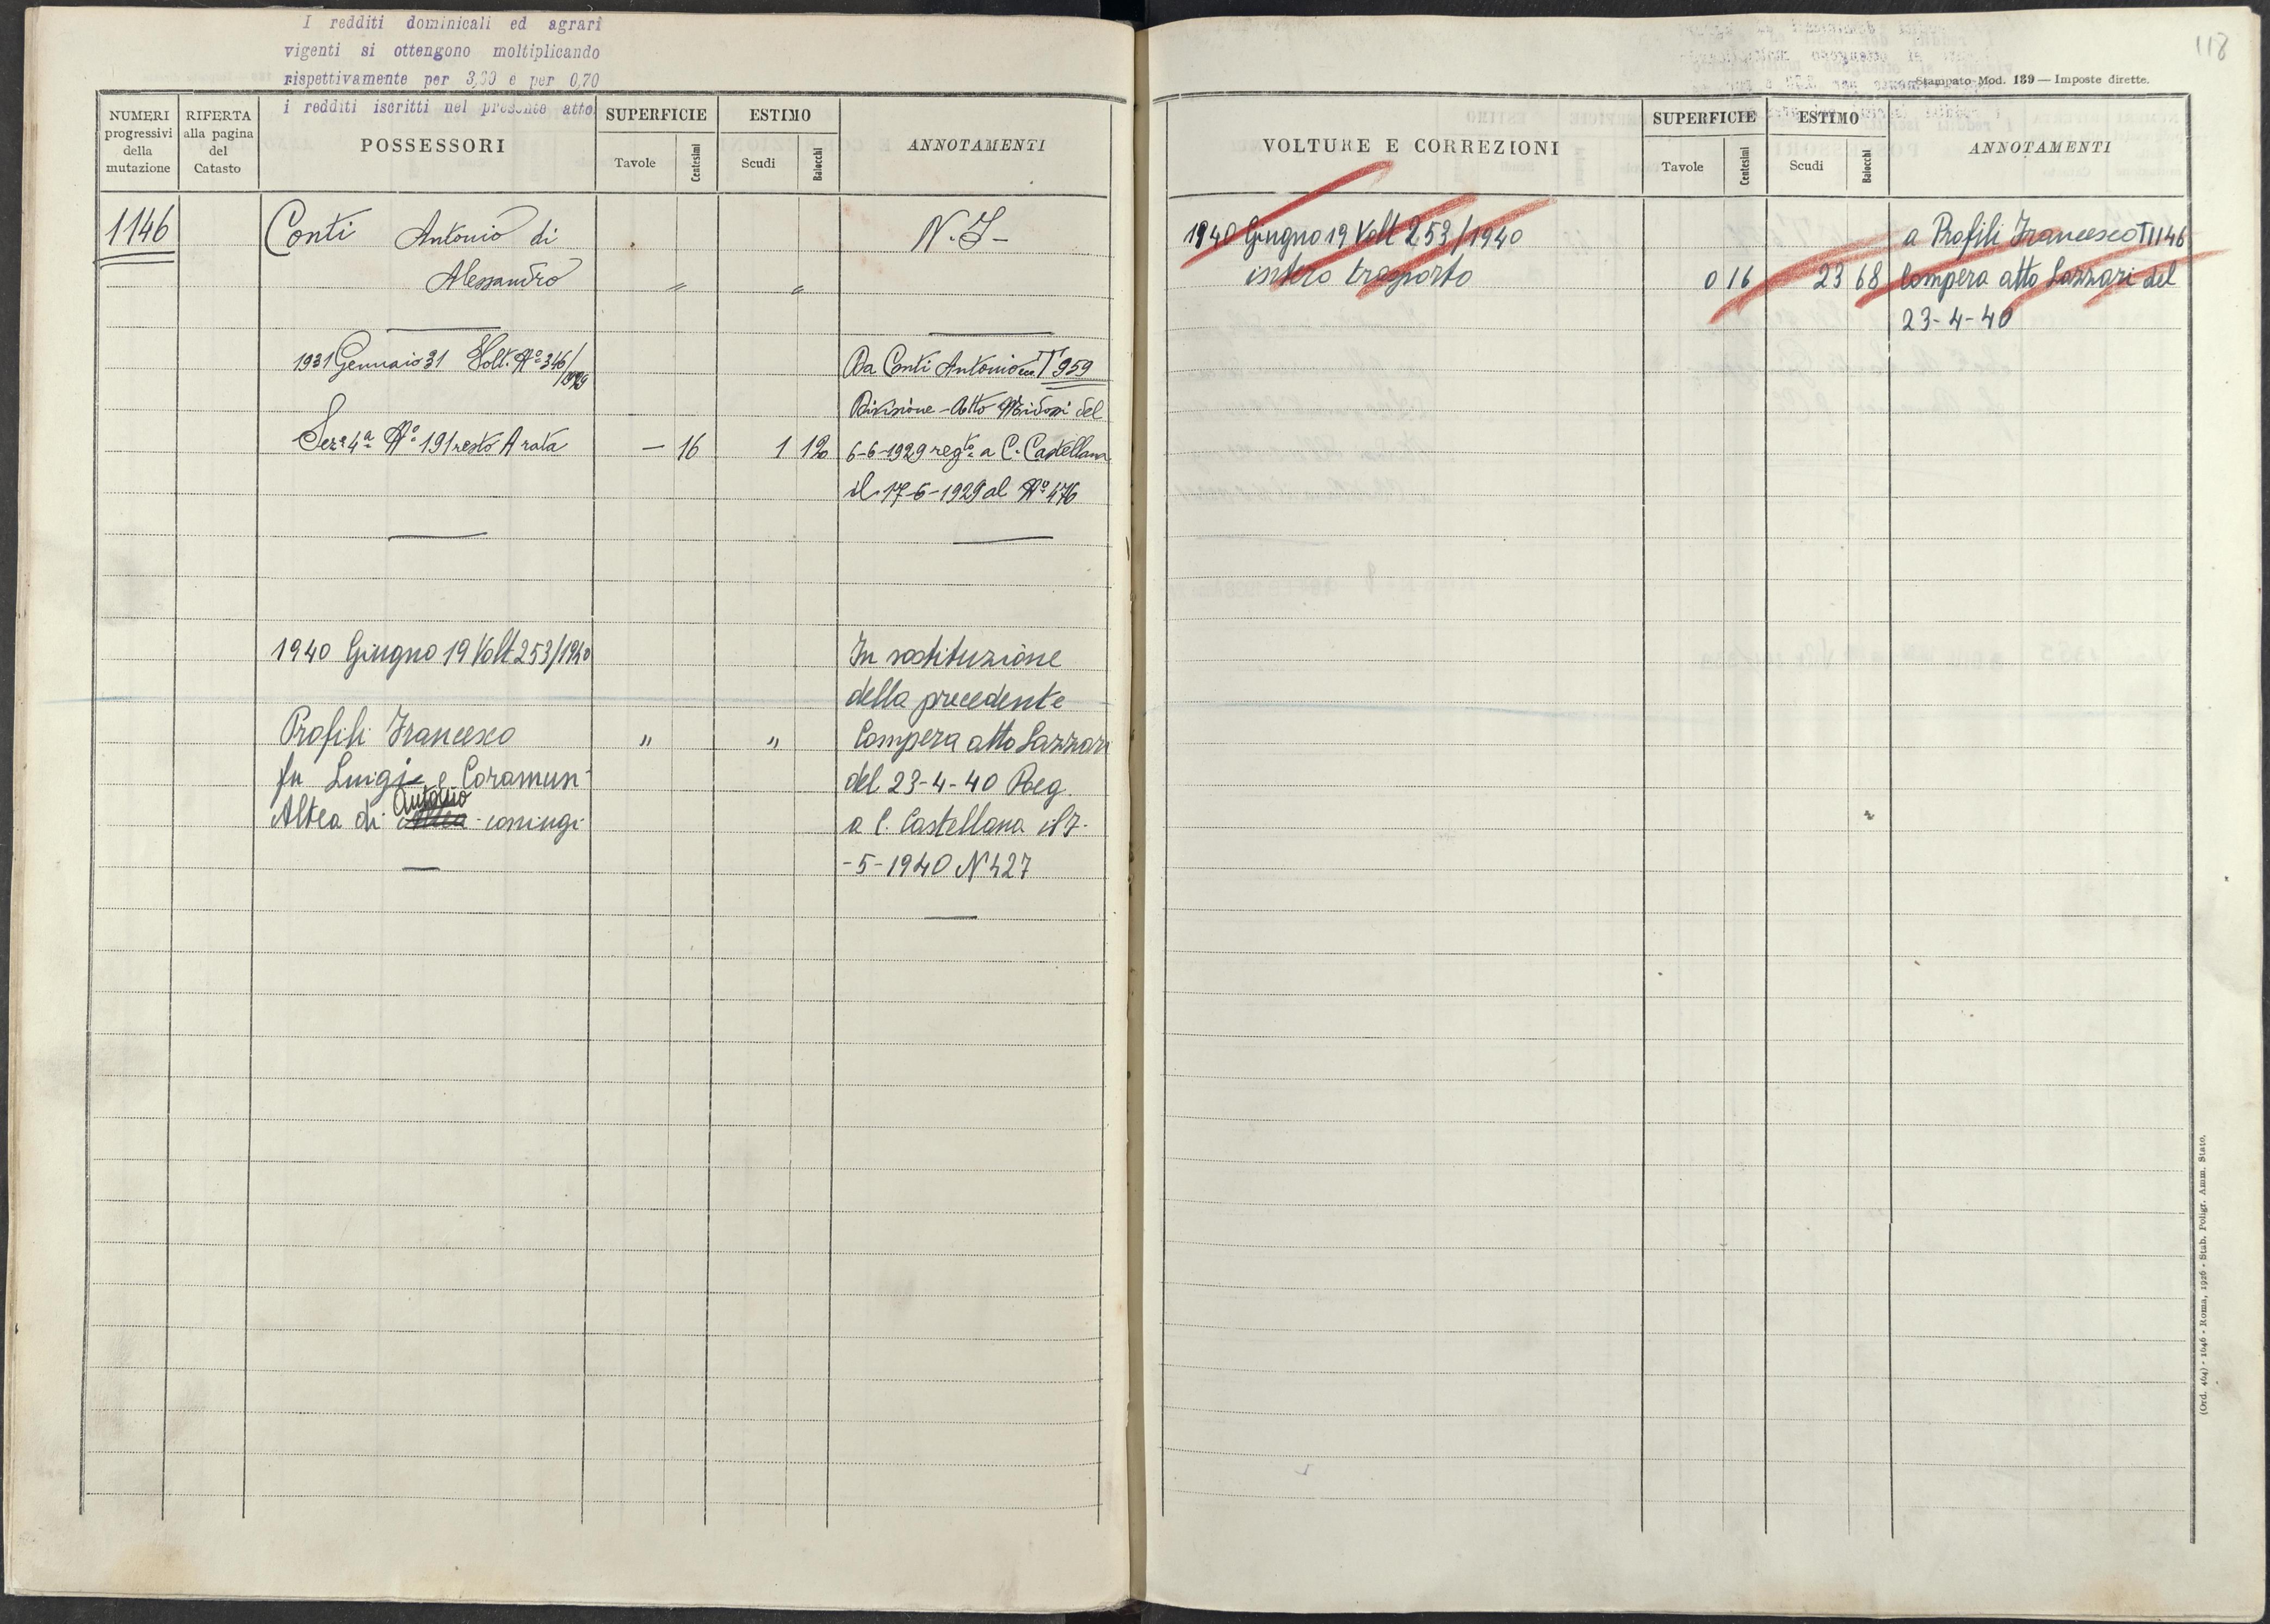 I redditi dominicali ed agrari
vigenti si ottengono moltiplicando
rispettivamente per 3,60 e per 0,70
i redditi iscritti nel presente atto
NUMERI progressivi della mutazione
RIFERTA alla pagina del Catasto
POSSESSORI
SUPERFICIE
Tavole
Centesimi
ESTIMO
Scudi
Baiocchi
ANNOTAMENTI
1146
Conti Antonio di
N. I -
Alessandro " "
1931 Gennaio 31 Volt. Nº 346/1929
Da Conti Antonio T 959
Divisione - Atto Midossi del
Sez. 4ª Nº 191 resto A rata — 16 1 12
6-6-1929 regto a C. Castellana
il 17-6-1929 al Nº 476
1940 Giugno 19 Volt 253/1940
In sostituzione
della precedente
Profili Francesco " "
Compera atto Lazzari
fu Luigi e Coramusi
del 23-4-40 Reg.
Altea di Antonio coniugi
a C. Castellana il 7-
-5-1940 N 427
118
Stampato Mod. 139 — Imposte dirette.
VOLTURE E CORREZIONI
SUPERFICIE
Tavole
Centesimi
ESTIMO
Scudi
Baiocchi
ANNOTAMENTI
1940 Giugno 19 Volt 253/1940
a Profili Francesco T 1146
intero trasporto 0 16 23 68
Compera atto Lazzari del
23-4-40
(Ord. 464) - 1046 - Roma, 1926 - Stab. Poligr. Amm. Stato.